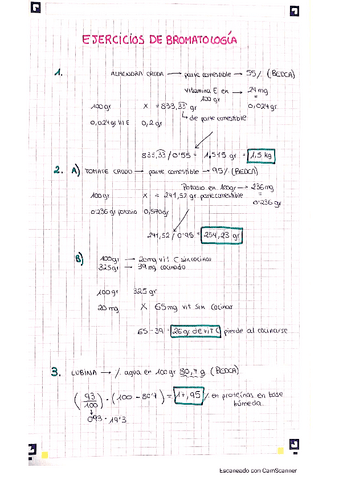 EJERCICIOS DE BROMATOLOGÍA
1. ALMENDRA CRUDA → parte comestible → 55% (BEDCA)
vitamina E en → 24mg
100gr
100gr X = 833,33 gr 0,024gr
0,024gr Vit E 0,2 gr ↳ de parte comestible
833,33/0'55 = 1,515 gr = 1,5 kg
2. A) TOMATE CRUDO → parte comestible → 95% (BEDCA)
Potasio en 100gr → 236mg
100gr X = 241,52 gr parte comestible
0'236gr
0'236gr potasio 0,570gr
241,52/0'95 = 254,23 gr
B) 100gr → 20mg vit C sin cocinar
325gr → 39mg cocinado
100gr 325gr
20mg X 65mg vit sin cocinar
65-39 = 26gr de vit C pierde al cocinarse
3. LUBINA → % agua en 100gr 80,7 g (BEDCA)
(93/100) · (100-80'7) = 17,95 % en proteínas en base
húmeda.
0'93 · 19'3
Escaneado con CamScanner